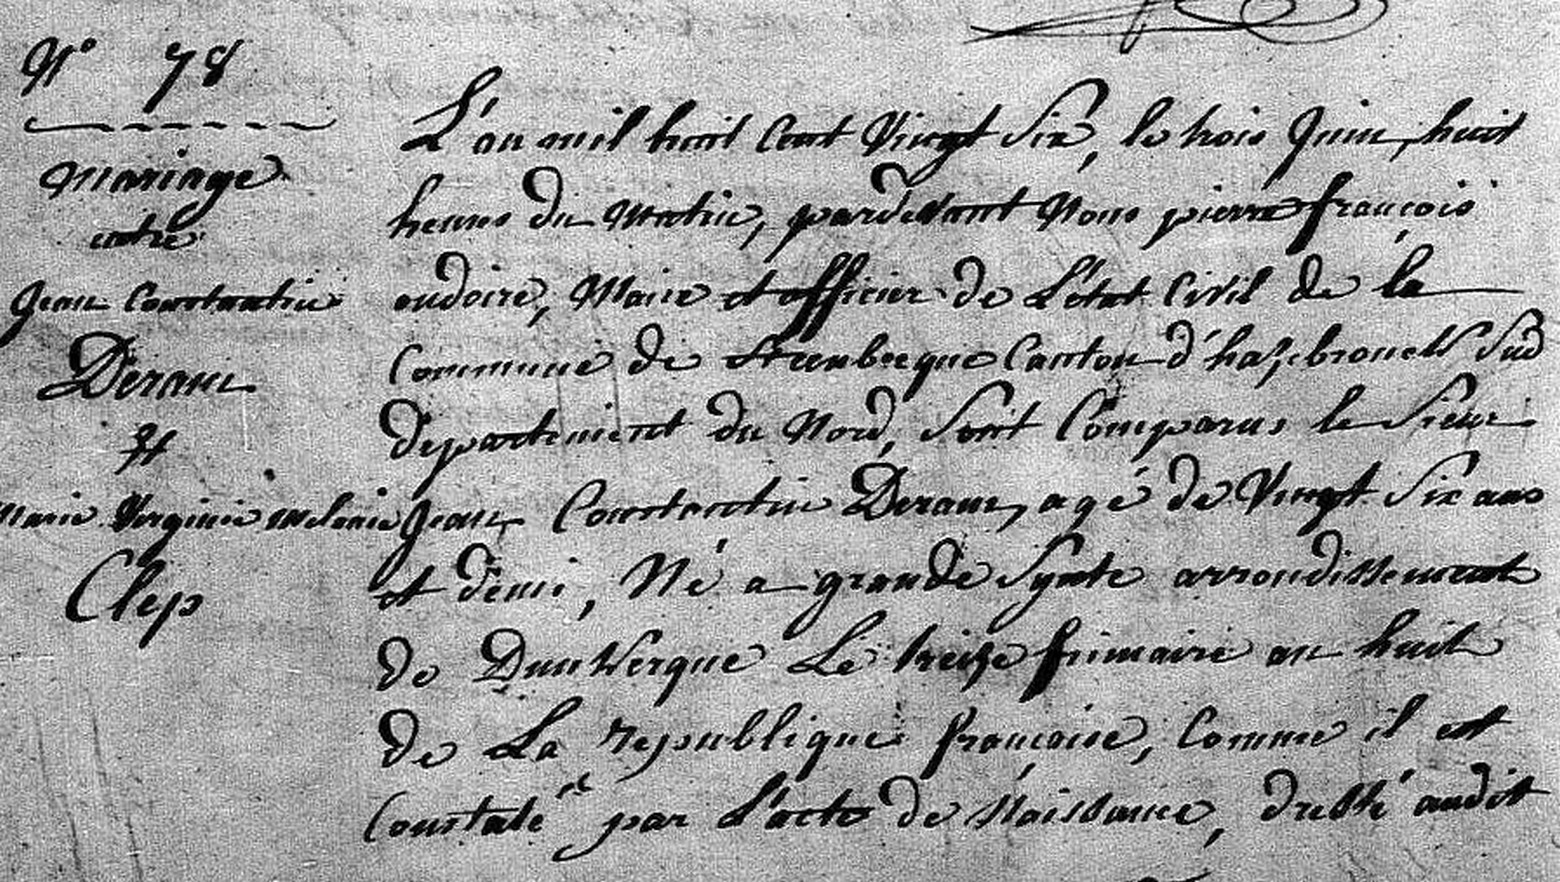 N° 78
Mariage
entre
Jean Constantin
Deram
Et
Marie Virginie melanie
Clep
L'an mil huit Cent Vingt Six, le trois Juin, huit
heures du Matin, pardevant Nous pierre françois
audoire, Maire et officier de L'état Civil de la
Commune de Steenbecque Canton d'hazebrouck Sud
departement du Nord, Sont Comparus le Sieur
Jean Constantin Deram, agé de Vingt Six ans
et demi, Né a grande Synte arrondissement
de Dunkerque Le treize frimaire an huit
de La republique françoise, Comme il est
Constaté par L'acte de Naissance, dressé audit